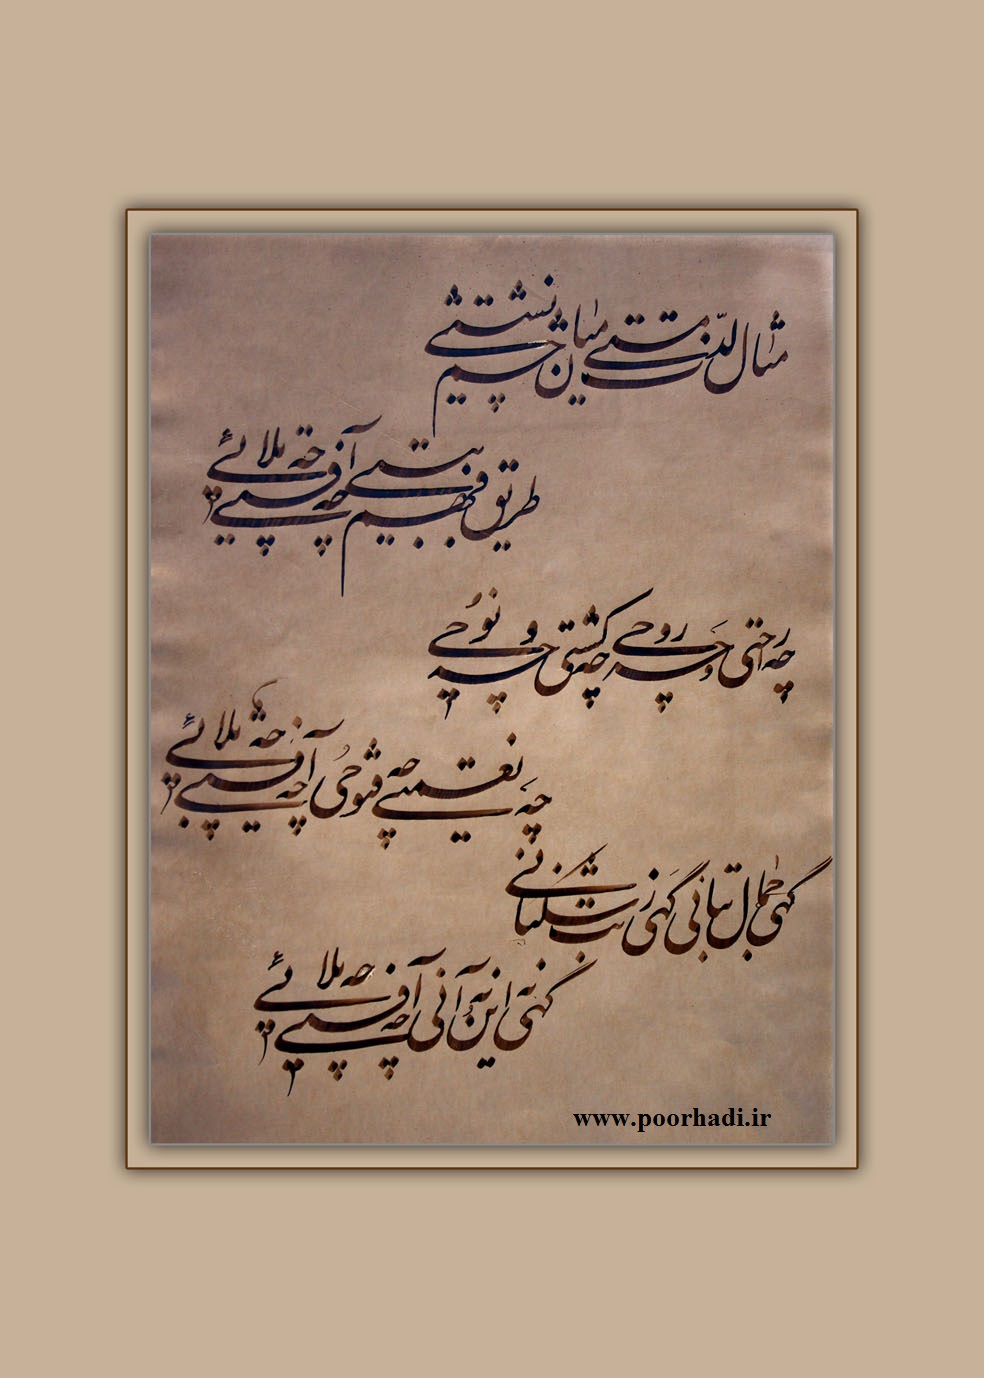 مثال لذّت مستی میان چشم نشستی
طریق فهم ببستی چه آفتی چه بلائی
چه راحتی و چه روحی چه کشتی و چه نوحی
چه نعمتی چه فتوحی چه آفتی چه بلائی
گهی جمال بتانی گهی ز بت شکنانی
گهی نه این و نه آنی چه آفتی چه بلائی
www.poorhadi.ir